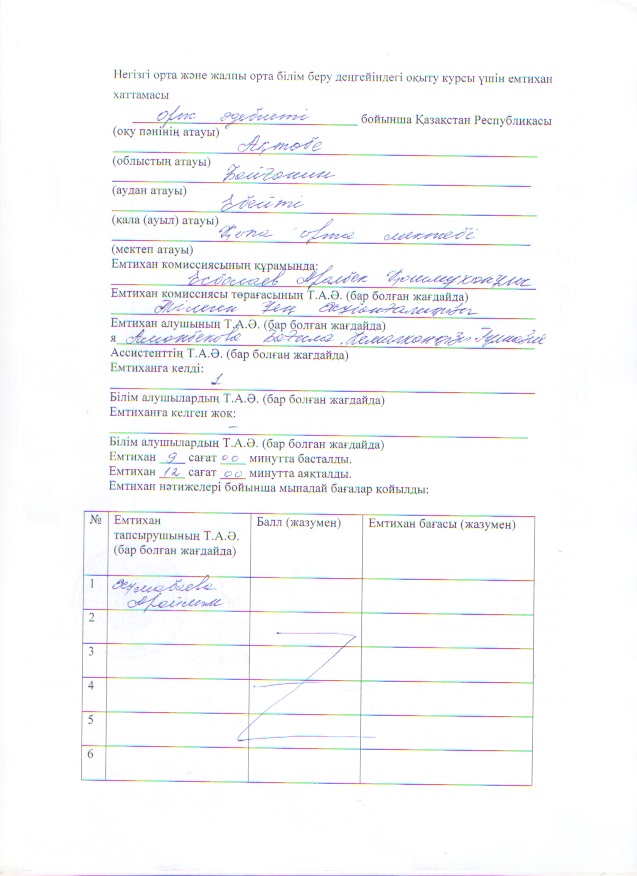 Негізгі орта және жалпы орта білім беру деңгейіндегі оқыту курсы үшін емтихан
хаттамасы
орыс әдебиеті бойынша Қазақстан Республикасы
(оқу пәнінің атауы)
Ақтөбе
(облыстың атауы)
Байғанин
(аудан атауы)
Ебейті
(қала (ауыл) атауы)
Қопа орта мектебі
(мектеп атауы)
Емтихан комиссиясының құрамында:
Есболаев Аралбек
Емтихан комиссиясы төрағасының Т.А.Ә. (бар болған жағдайда)
Тілеген
Емтихан алушының Т.А.Ә. (бар болған жағдайда)
я
Ассистенттің Т.А.Ә. (бар болған жағдайда)
Емтиханға келді:
1
Білім алушылардың Т.А.Ә. (бар болған жағдайда)
Емтиханға келген жоқ:
–
Білім алушылардың Т.А.Ә. (бар болған жағдайда)
Емтихан 9 сағат 00 минутта басталды.
Емтихан 12 сағат 00 минутта аяқталды.
Емтихан нәтижелері бойынша мынадай бағалар қойылды:
№ Емтихан Балл (жазумен) Емтихан бағасы (жазумен)
тапсырушының Т.А.Ә.
(бар болған жағдайда)
1
Арайлым
2
3
4
5
6